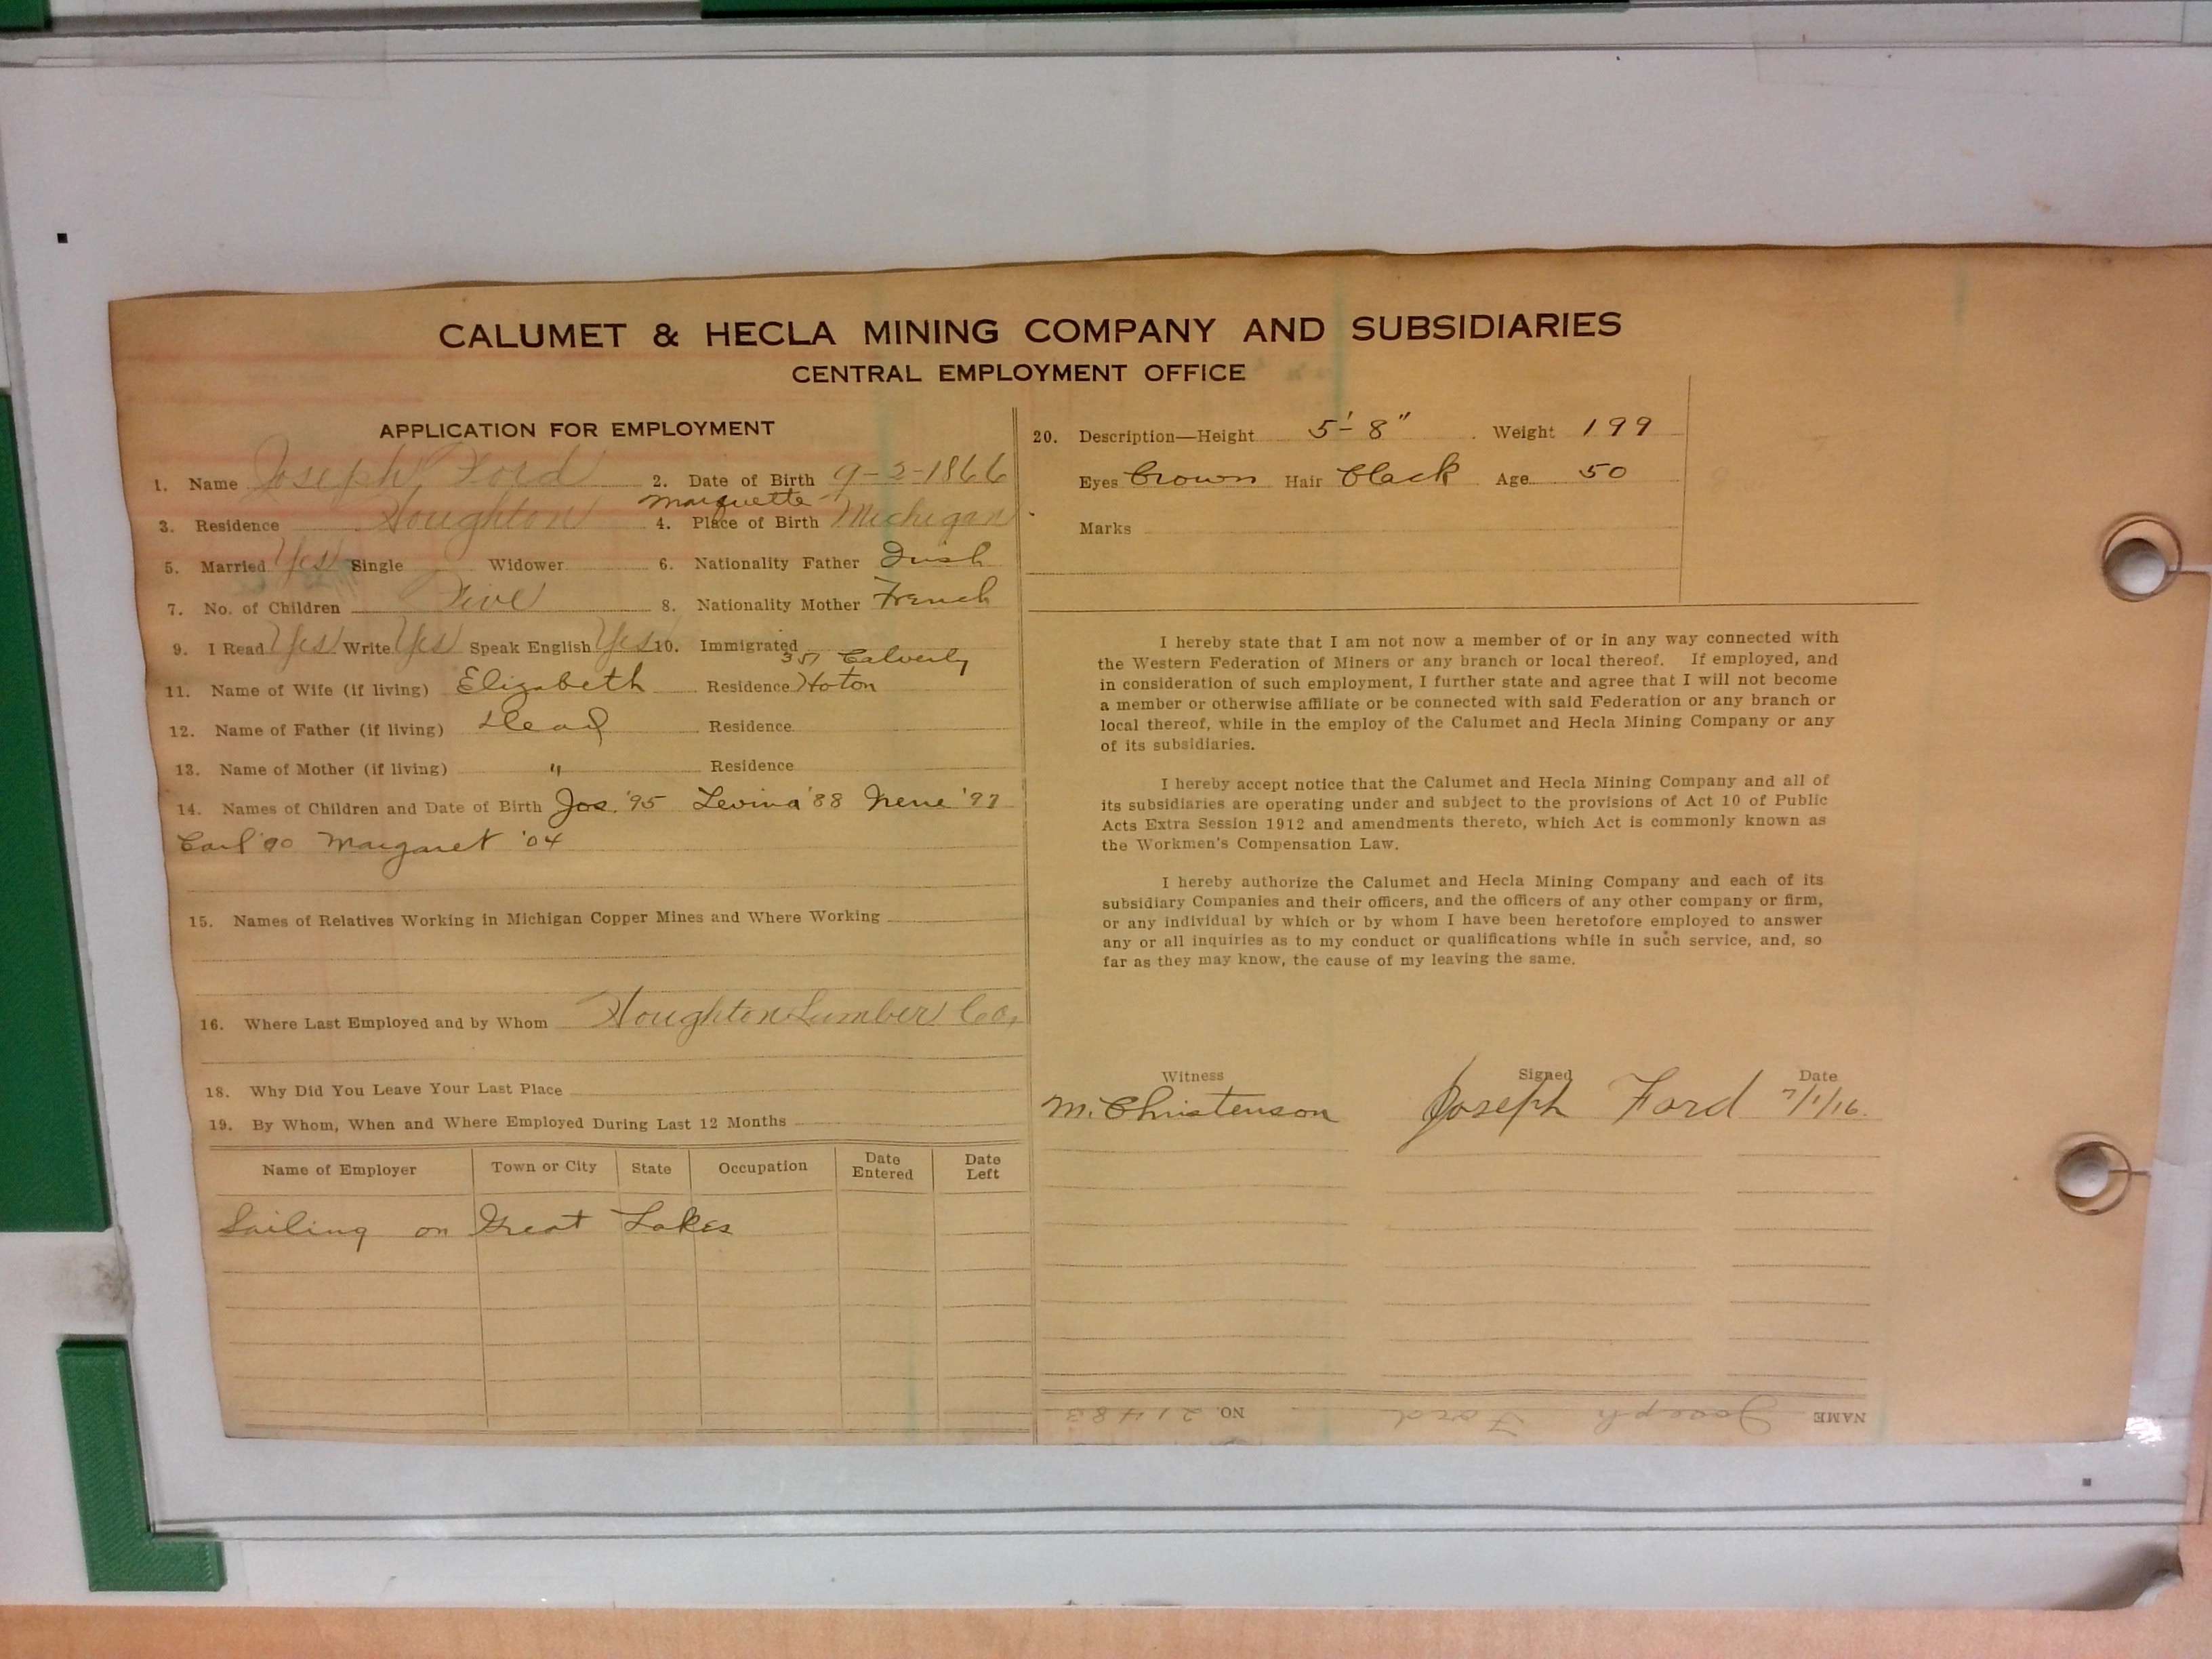 CALUMET & HECLA MINING COMPANY AND SUBSIDIARIES
CENTRAL EMPLOYMENT OFFICE
APPLICATION FOR EMPLOYMENT
1. Name Joseph Ford 2. Date of Birth 9-2-1866
Marquette
3. Residence Houghton 4. Place of Birth Michigan
5. Married Yes Single Widower 6. Nationality Father Irish
7. No. of Children Five 8. Nationality Mother French
9. I Read Yes Write Yes Speak English Yes 10. Immigrated
351 Calverly
11. Name of Wife (if living) Elizabeth Residence Hoton
12. Name of Father (if living) Dead Residence
13. Name of Mother (if living) " Residence
14. Names of Children and Date of Birth Jos. '95 Levina '88 Irene '97
Carl '90 Margaret '04
15. Names of Relatives Working in Michigan Copper Mines and Where Working
16. Where Last Employed and by Whom Houghton Lumber Co.
18. Why Did You Leave Your Last Place
19. By Whom, When and Where Employed During Last 12 Months
Name of Employer Town or City State Occupation Date Entered Date Left
Sailing on Great Lakes
20. Description—Height 5'-8" Weight 199
Eyes Brown Hair Black Age 50
Marks
I hereby state that I am not now a member of or in any way connected with
the Western Federation of Miners or any branch or local thereof. If employed, and
in consideration of such employment, I further state and agree that I will not become
a member or otherwise affiliate or be connected with said Federation or any branch or
local thereof, while in the employ of the Calumet and Hecla Mining Company or any
of its subsidiaries.
I hereby accept notice that the Calumet and Hecla Mining Company and all of
its subsidiaries are operating under and subject to the provisions of Act 10 of Public
Acts Extra Session 1912 and amendments thereto, which Act is commonly known as
the Workmen's Compensation Law.
I hereby authorize the Calumet and Hecla Mining Company and each of its
subsidiary Companies and their officers, and the officers of any other company or firm,
or any individual by which or by whom I have been heretofore employed to answer
any or all inquiries as to my conduct or qualifications while in such service, and, so
far as they may know, the cause of my leaving the same.
Witness Signed Date
M. Christenson Joseph Ford 7/1/16.
NAME Joseph Ford NO. 21483